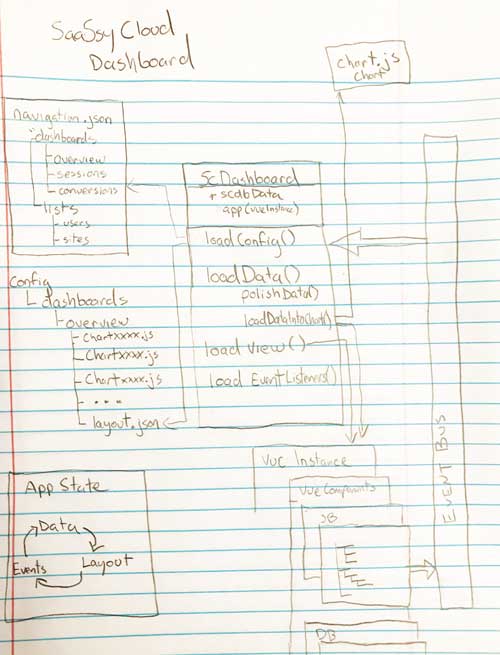 SaaSsy Cloud
Dashboard
chart.js
Chart
navigation.json
dashboards
overview
sessions
conversions
lists
users
sites
ScDashboard
+ scdbData
app(vueInstance)
loadConfig()
loadData()
polishData()
loadDataIntoChart()
load View()
load EventListeners()
Config
dashboards
overview
Chartxxxx.js
Chartxxxx.js
Chartxxxx.js
....
layout.json
App State
Data
Layout
Events
Vue Instance
Vue Components
DB
E
E
DB
EVENT BUS